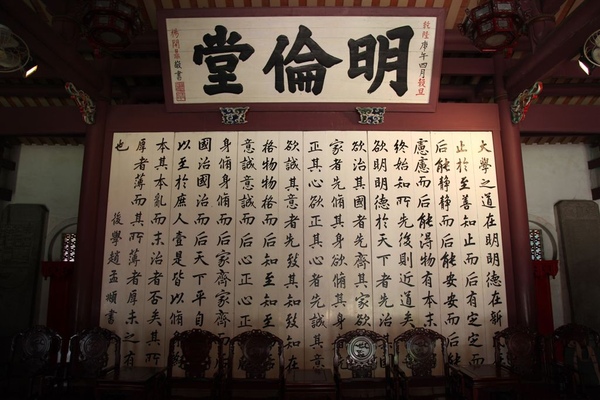 明倫堂
乾隆庚午四月穀旦
大學之道在明明德在新
止於至善知止而后有定定而
后能靜靜而后能安安而后能
慮慮而后能得物有本末
終始知所先後則近道矣
欲明明德於天下者先治
欲治其國者先齊其家欲
家者先脩其身欲脩其身
正其心欲正其心者先誠其意
欲誠其意者先致其知致知在
格物物格而后知至知至
意誠意誠而后心正心正
身脩身脩而后家齊家齊
國治國治而后天下平自
以至於庶人壹是皆以脩
本其本亂而末治者否矣其所
厚者薄而其所薄者厚未之有
也
後學趙孟頫書